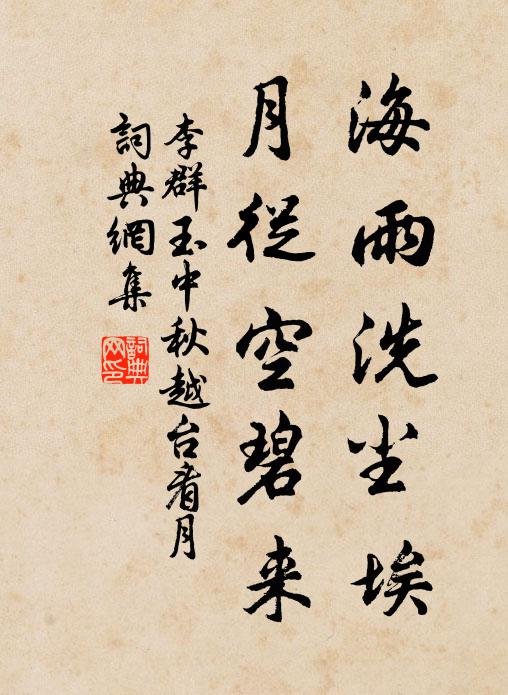 海雨洗尘埃
月從空碧来
李群玉中秋越台看月
詞典網集
詞典网印